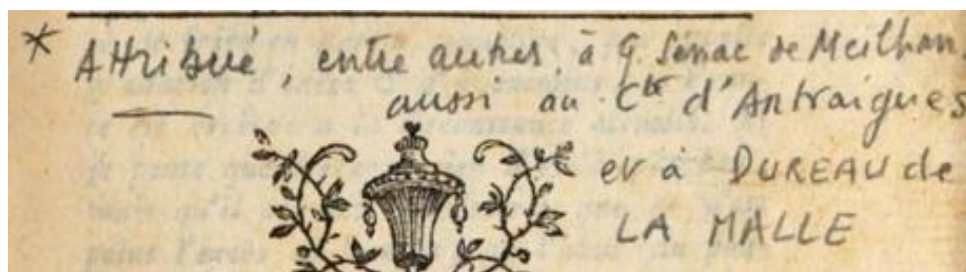 * Attribué, entre autres à G. Senac de Meilhan.
aussi au Cte d'Antraigues
et à DUREAU de
LA MALLE